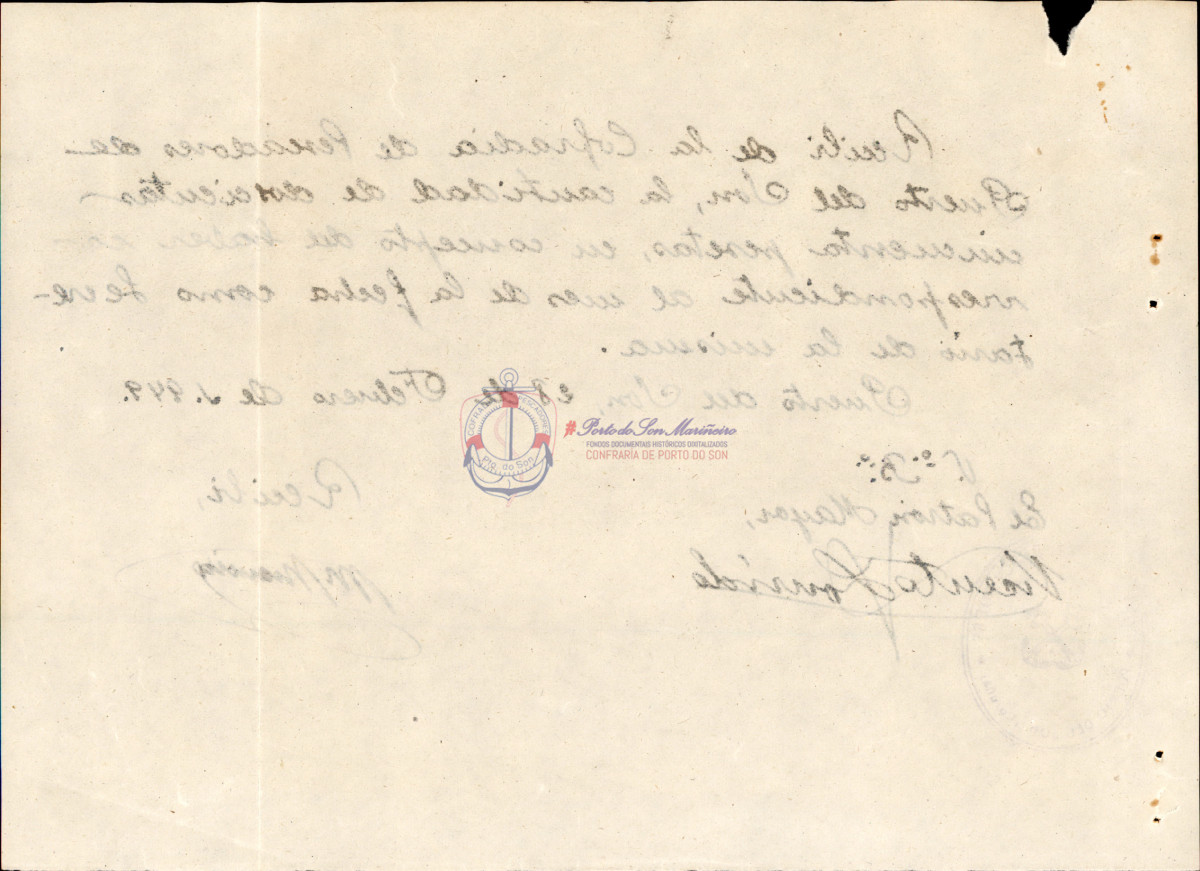 Recibi de la Cofradia de Pescadores de
Puerto del Son, la cantidad de doscientas
cincuenta pesetas, en concepto de haber co-
rrespondiente al mes de la fecha como Secre-
tario de la misma.
Puerto del Son, 28 de Febrero de 1.949.
V.º B.º:
El Patrón Mayor,
Recibi,
Vicente
COFRADÍA PESCADORES
Pto. do Son
#Porto do Son Mariñeiro
FONDOS DOCUMENTAIS HISTÓRICOS DIXITALIZADOS
CONFRARÍA DE PORTO DO SON